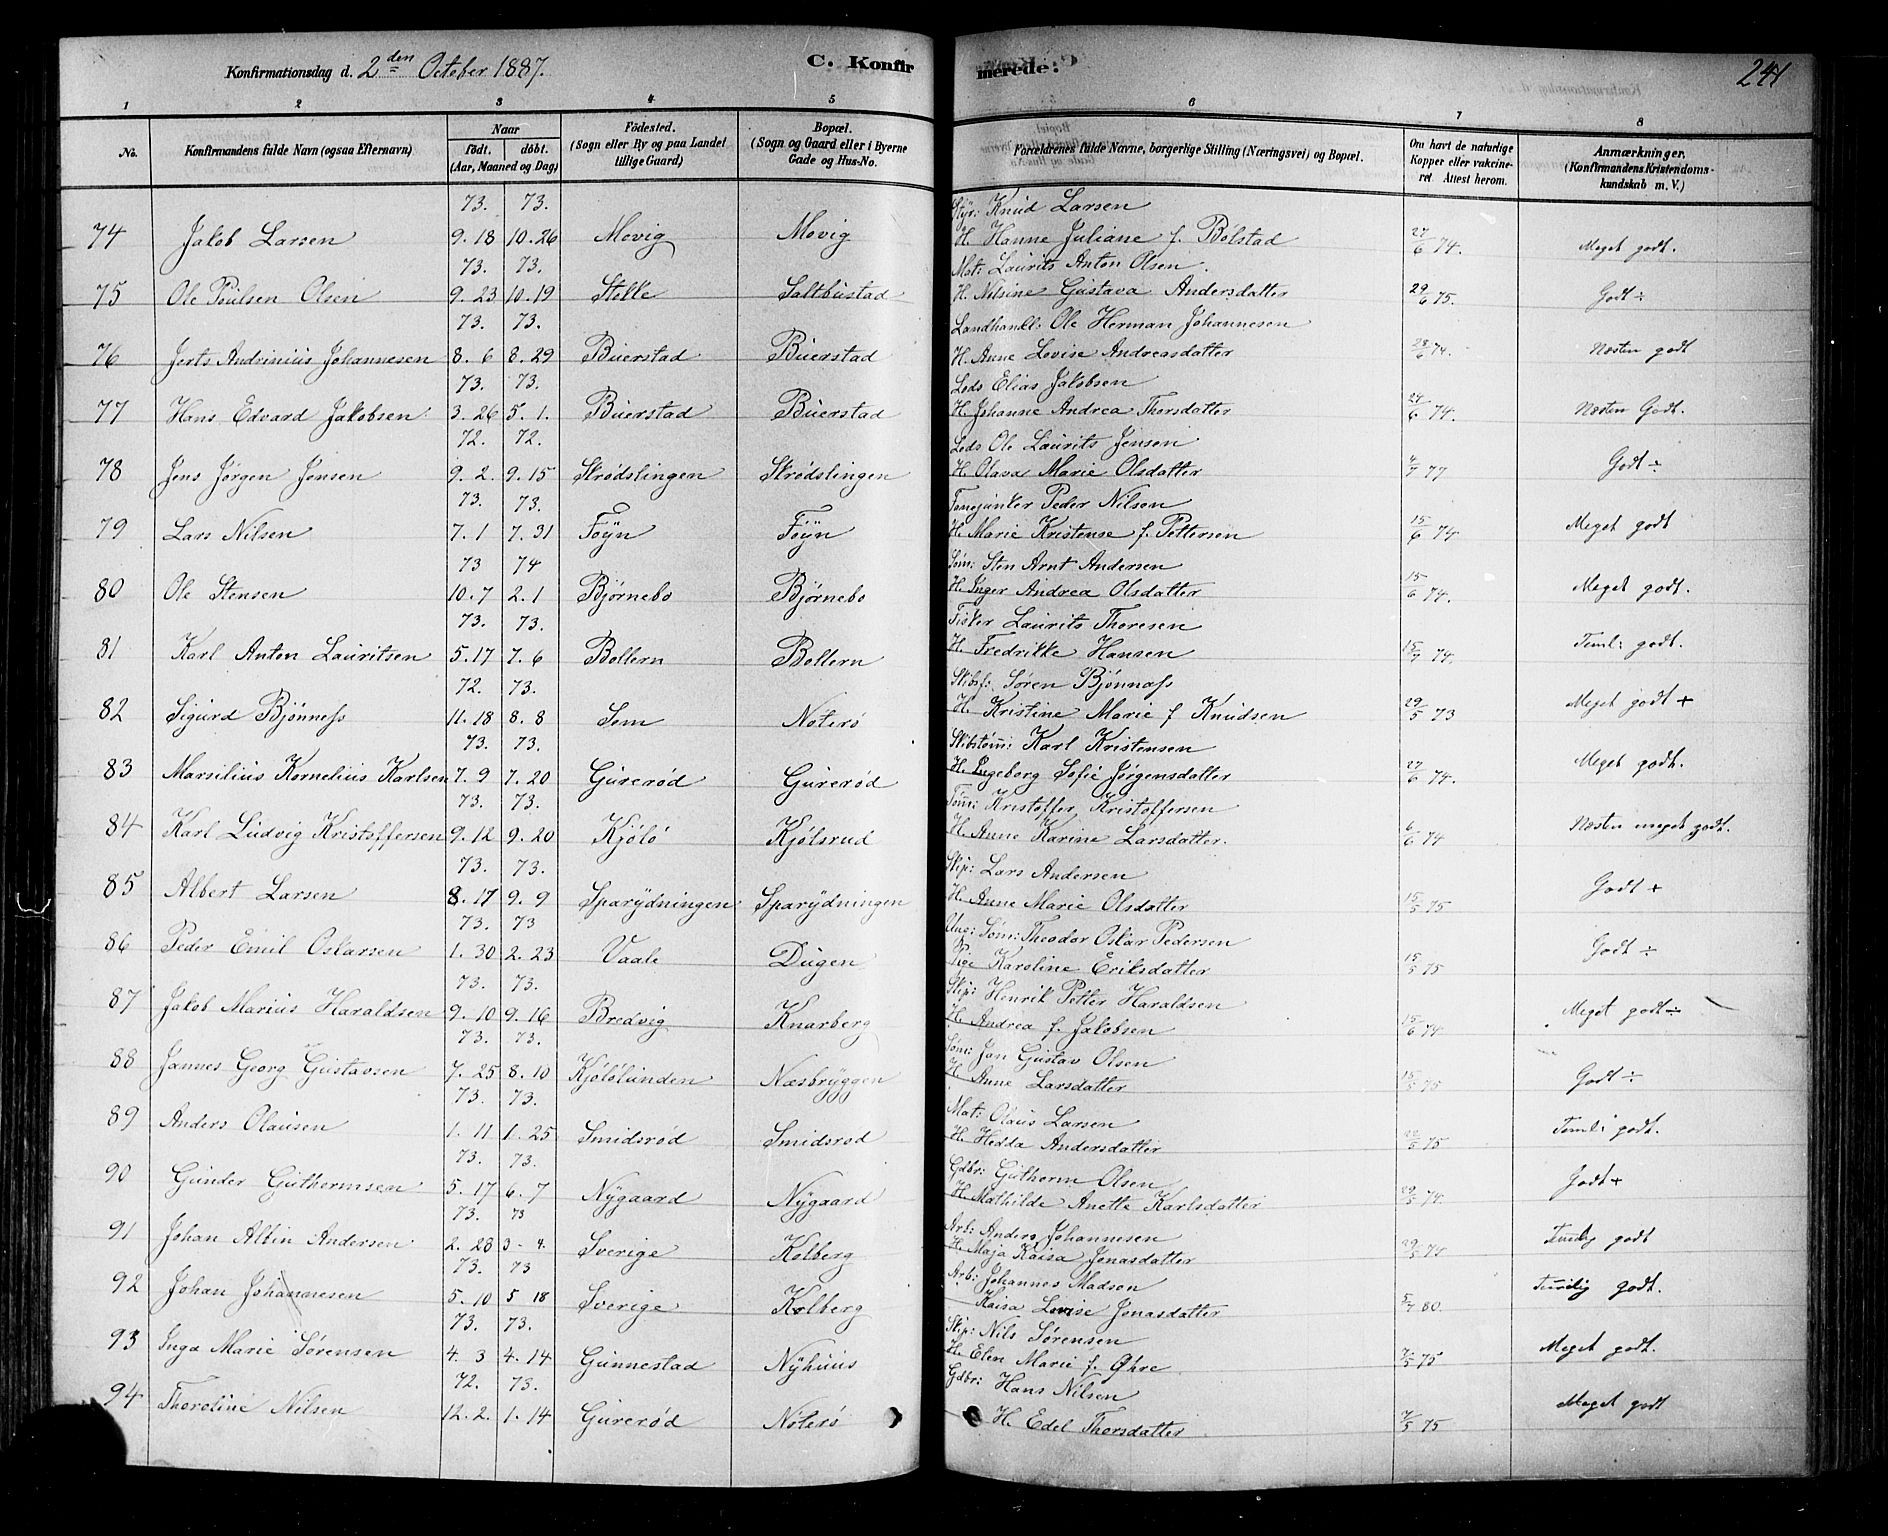 Konfirmationsdag d. 2den October 1887.
C. Konfirmerede.
241
1 2 3 4 5 6 7 8
No. Konfirmandens fulde Navn (ogsaa Efternavn) Naar födt. döbt. (Aar, Maaned og Dag) Födested. (Sogn eller By og paa Landet tillige Gaard) Bopæl. (Sogn og Gaard eller i Byerne Gade og Hus-No. Forældrenes fulde Navne, borgerlige Stilling (Næringsvei) og Bopæl. Om havt de naturlige Kopper eller vakcineret Attest herom. Anmærkninger. (Konfirmandens Kristendomskundskab m. V.)
73. 73. Styr: Knud Larsen
74 Jakob Larsen 9. 18 10. 26 Movig Movig H. Hanne Juliane f. Bølstad 27/6 74. Meget godt.
73. 73. Mat: Laurits Anton Olsen
75 Ole Poulsen Olsen 9. 23 10. 19 Stelke Saltbustad H. Nilsine Gustava Andersdatter 29/6 75. Godt ÷
73. 73. Landhandl: Ole Herman Johannesen
76 Jerts Andrinius Johannesen 8. 6 8. 29 Buerstad Buerstad H. Anne Lovise Andreasdatter 28/6 74. Næsten godt
73. 73. Leds Elias Jakobsen
77 Hans Edvard Jakobsen 3. 26 5. 1. Buerstad Buerstad H. Johanne Andrea Thorsdatter 24/6 74. Næsten Godt.
72. 72. Leds Ole Laurits Jensen
78 Jens Jørgen Jensen 9. 2. 9. 15 Skrødslingen Skrødslingen H. Olava Marie Olsdatter 4/7 77 Godt ÷
73. 73. Peder Nilsen
79 Lars Nilsen 7. 1 7. 31 Føyn Føyn H. Marie Kristense f. Pettersen 15/6 74. Meget godt
73 74 Søm: Sten Arnt Andersen
80 Ole Stensen 10. 7 2. 1 Bjørnebo Bjørnebo H. Inger Andrea Olsdatter 15/6 74. Meget godt.
73. 73. Fisker Laurits Thoresen
81 Karl Anton Lauritsen 5. 17 7. 6 Bollern Bollern H. Fredrikke Hansen 15/7 74. Teml: godt.
72. 73. Skibsf: Søren Bjønness
82 Sigurd Bjønness 11. 18 8. 8 Sem Noterø H. Kristine Marie f Knudsen 29/5 73 Meget godt +
73. 73. Skibstøm: Karl Kristensen
83 Marsilius Kornelius Karlsen 7. 9 7. 20 Gurerød Gurerød H. Ingeborg Sofie Jørgensdatter 27/6 74. Meget godt.
73. 73. Tøm: Kristoffer Kristoffersen
84 Karl Ludvig Kristoffersen 9. 12 9. 20 Kjölö Kjölsrud H. Anne Karine Larsdatter. 6/6 74 Næsten meget godt.
73. 73. Skip: Lars Andersen
85 Albert Larsen 8. 17 9. 9 Sparydningen Sparydningen H. Anne Marie Olsdatter 15/5 75 Godt +
73. 73 Ung: Søm: Theodor Oskar Pedersen
86 Peder Emil Oskarsen 1. 30 2. 23 Vaale Dugen Pige Karoline Eriksdatter 15/5 75 Godt ÷
73. 73. Skip: Henrik Petter Haraldsen
87 Jakob Marius Haraldsen 9. 10 9. 16 Bredvig Knarberg H. Andrea f. Jakobsen 15/6 74. Meget godt ÷
73. 73. Søm: Jan Gustav Olsen
88 Jannes Georg Gustavsen 7. 25 8. 10 Kjölölunden Næsbryggen H. Anne Larsdatter 15/5 75 Godt ÷
73. 73. Mat: Olaus Larsen
89 Anders Olausen 1. 11 1. 25 Smidsrød Smidsrod H. Hedda Andersdatter 22/5 75 Teml: godt.
73. 73. Gdbr: Gutherm Olsen
90 Gunder Guthermsen 5. 17 6. 7 Nygaard Nygaard H. Mathilde Anette Karlsdatter 29/5 74. Godt +
73. 73 Arb: Anders Johannesen
91 Johan Albin Andersen 2. 28 3 - 4. Sverige Kolberg H. Maja Kaisa Jonasdatter 29/5 74 Temlig godt
73. 73 Arb: Johannes Madsen
92 Johan Johannesen 5. 10 5 18 Sverige Kolberg Kaisa Lovise Jonasdatter 5/7 80. Temlig godt.
73. 73. Skip: Nils Sørensen
93 Inga Marie Sørensen 4. 3 4. 14 Gunnestad Nyhuus H. Elen Marie f. Øhre 7/5 75 Meget godt.
72. 73. Gdbr: Hans Nilsen
94 Thoroline Nilsen 12. 2. 1. 14 Gurerød Nøterø H. Edel Thorsdatter 7/5 75 Meget godt